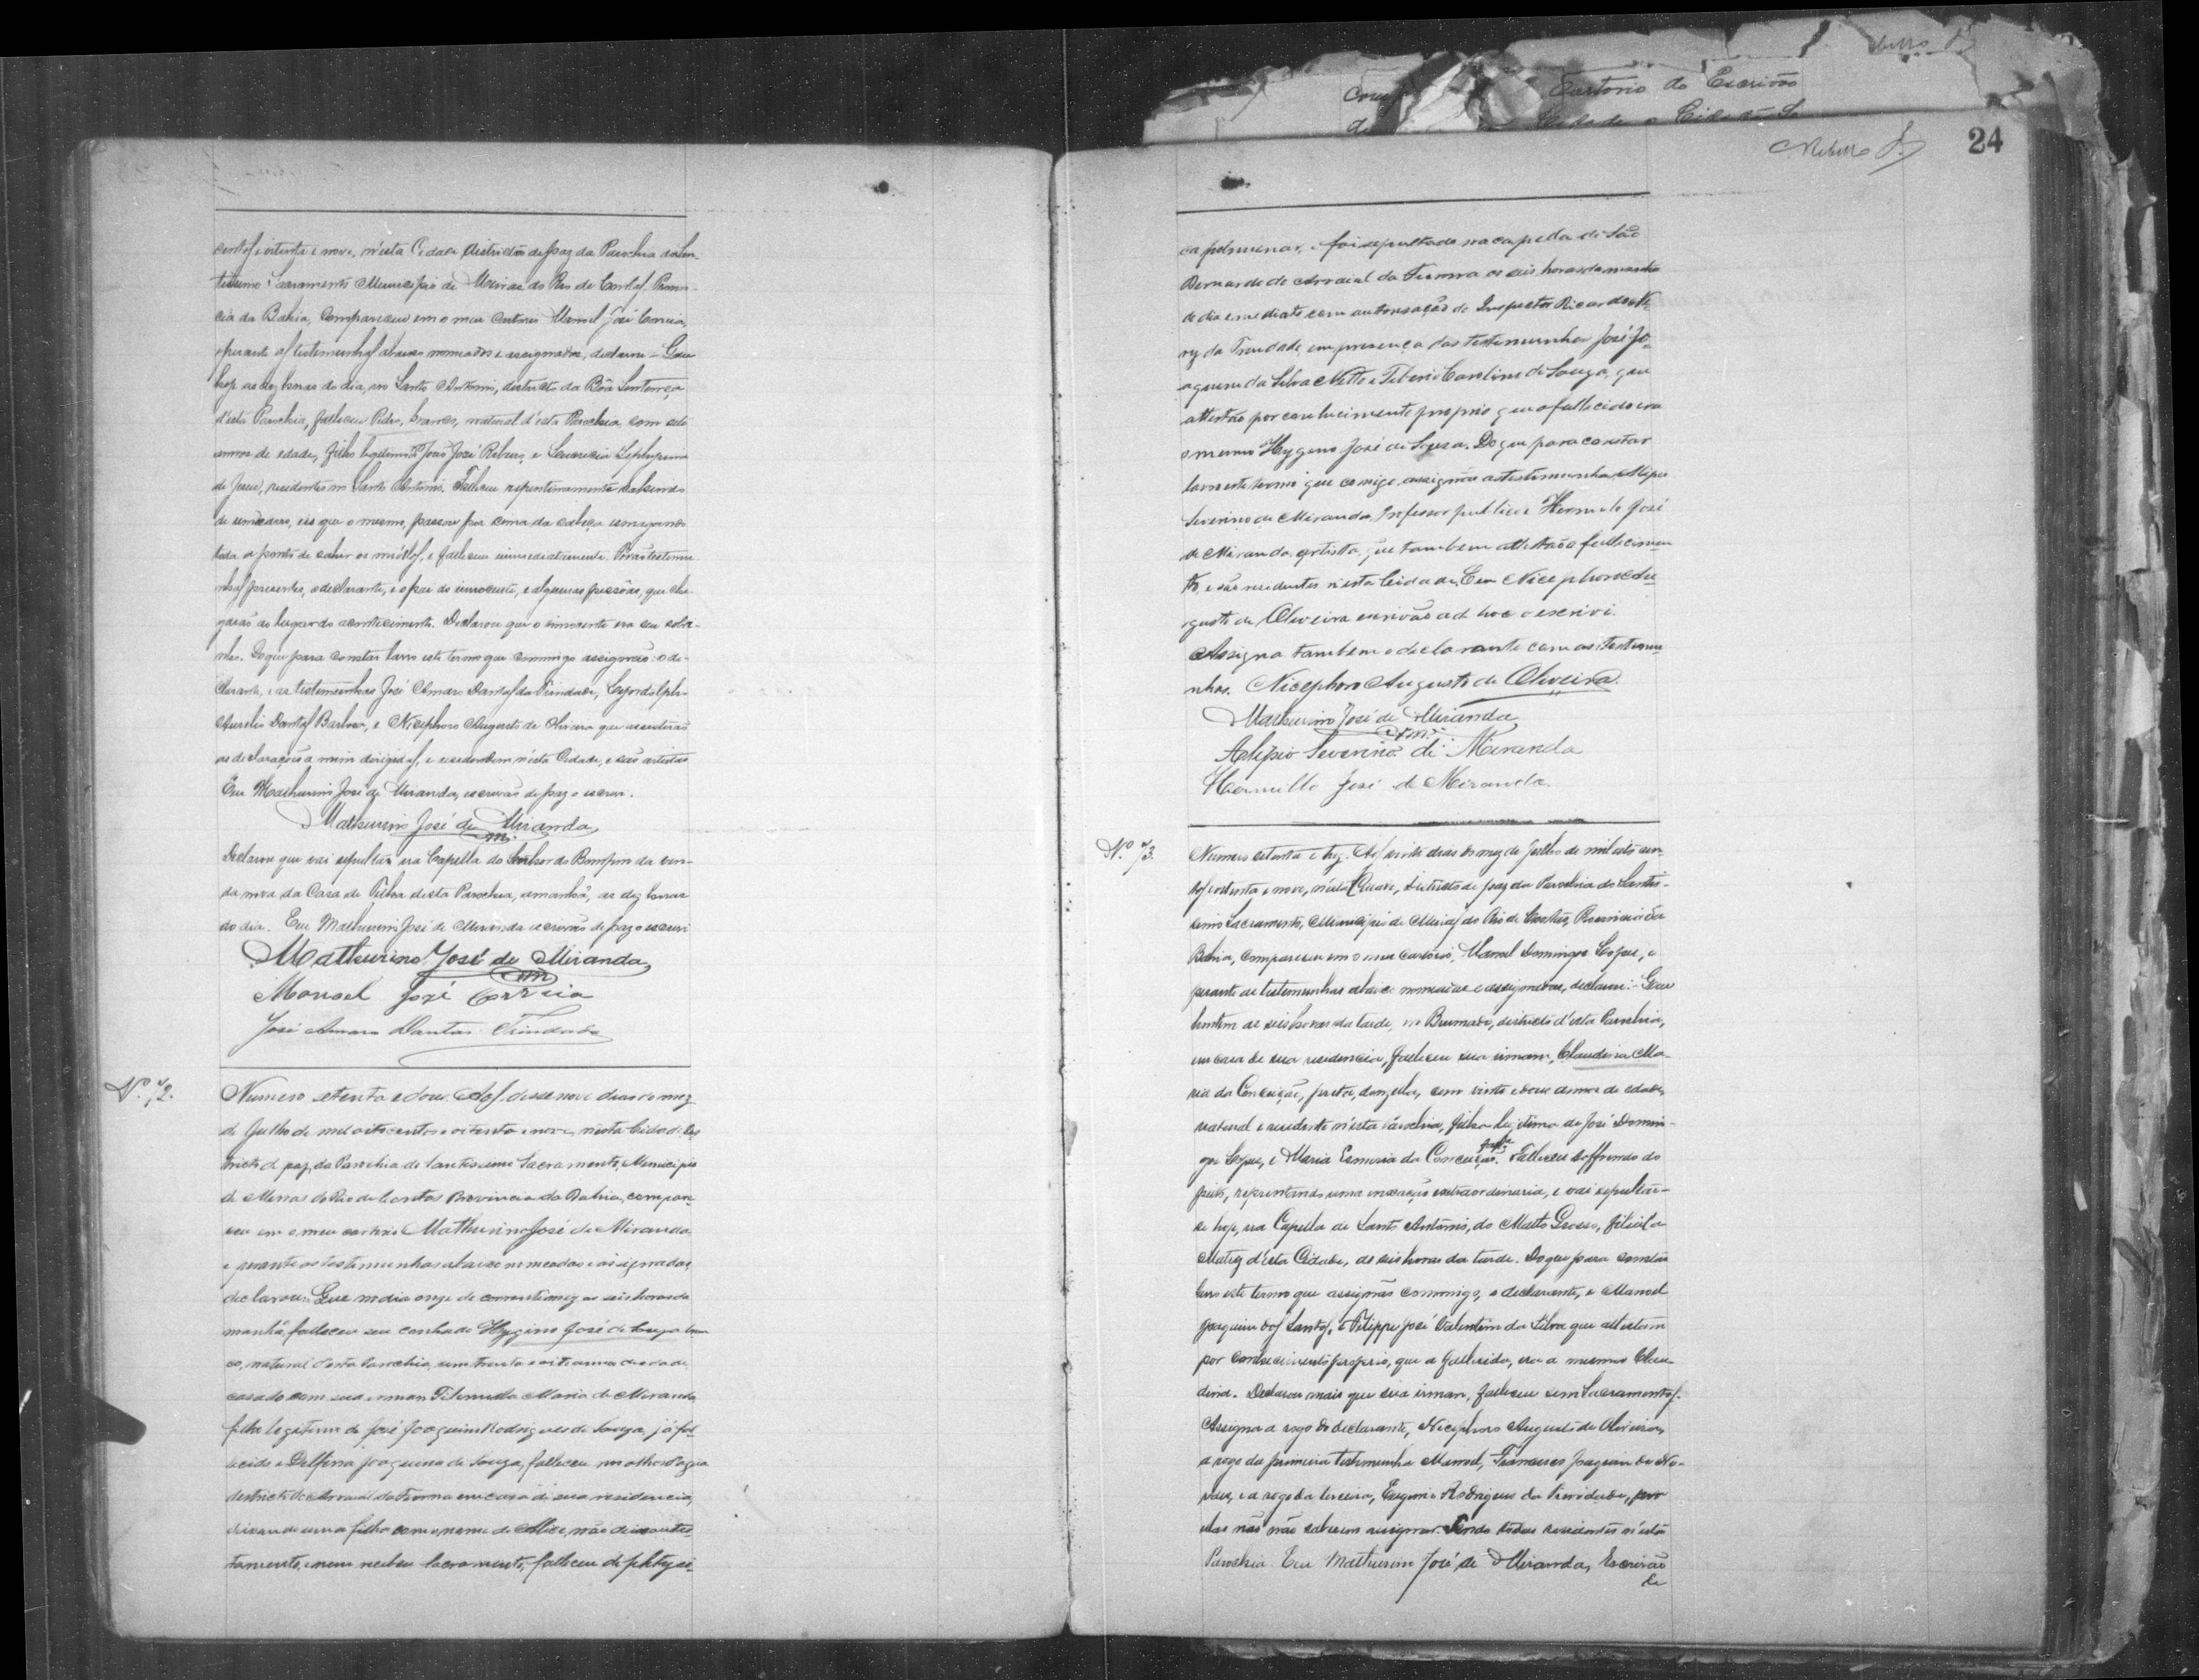 centos e oitenta e nove, n'esta Cidade districto de paz da Parochia do San-
tissimo Sacramento Municipio de Minas do Rio de Contas, Provin-
cia da Bahia, Compareceu em o meu Cartorio Manoel José Correia,
e perante as testemunhas abaixo nomeados e assignados, declarou – Que
hoje as dez horas do dia, no Santo Antonio, districto da Bôa Sentença
d'esta Parochia, falleceu Pedro, branco, natural d'esta Parochia com sete
annos de edade, filho legitimo de João José Rebouço, e
de Jesus, residentes no Santo Antonio. Falleceu repentinamente cahindo
de um carro, eis que o mesmo, passou por cima da cabeça esmagando
toda a ponto de sahir os miólos, e falleceu immediatamente. Forão testemu-
nhas presentes, o declarante, e o pai do innocente, e algumas pessôas, que che-
garão ao lugar do acontecimento. Declarou que o innocente era seu sobri-
nho. Do que para constar lavro este termo que commigo assignão o de-
clarante, e as testemunhas José Amaro Dantas da Trindade,
Aurelio Dantas Barbosa, e Nicephoro Augusto de Oliveira que assistirão
as declarações a mim dirigidas, e residentem n'esta Cidade, e são artistas
Eu Mathurino José de Miranda, escrivão de paz o escrevi.
Mathurino José de Miranda
Declarou que vai sepultar na Capella do Senhor do Bomfim da
da nova da Casa de Telha desta Parochia, amanhã, as dez horas
do dia. Eu Mathurino José de Miranda escrivão de paz o escrevi
Mathurino José de Miranda
Manoel José Correia
José Amaro Dantas Trindade
Nº. 72.
Numero setenta e dous. Aos desenove dias do mez
de Julho de mil oitocentos e oitenta e nove, n'esta Cidade Dis
tricto de paz da Parochia do Santissimo Sacramento, Municipio
de Minas do Rio de Contas Provincia da Bahia, compare
ceu em o meu cartorio Mathurino José de Miranda
e perante as testemunhas abaixo nomeadas e assignadas,
declarou: Que no dia onze do corrente mez as seis horas da
manhã, falleceu seu cunhado Hygino José de Souza bran
co, natural d'esta Parochia, com trinta e oito annos de edade
casado com sua irman Filomilla Maria de Miranda
filho legitimo de José Joaquim Rodrigues de Souza, já fal-
lecido e Delfina Joaquina de Souza, falleceu no olho d'agua
destricto do Arraial da Furna em casa de sua residencia,
deixando uma filha com o nome de Alice, não deixou tes-
tamento, e nem recebeu sacramento, falleceu de phtysi-
24
Rebello
Cartorio do Escrivão
ca pulmunar, e foi sepultado na capella de São
Bernardo do Arraial da Furna as seis horas da manhã
do dia immediato com autorisação do Inspector Ricardo Ne
ry da Trindade, em presença das testemunhas José Jo-
aquim da Silva Netto e Tiberio Carolino de Souza, que
attestão por conhecimento proprio que o fallecido era
o mesmo Hygino José de Souza. Do que para constar
lavro este termo que comigo assignão as testemunhas Alipio
Severino de Miranda Professor publico e Hermillo José
de Miranda, artista, que tambem attestão o fallecimen
to, e são residentes n'esta Cidade, Eu Nicephoro Au-
gusto de Oliveira escrivão ad hoc o escrivi.
Assigna tambem o declarante com as testemu
nhas. Nicephoro Augusto de Oliveira.
Mathurino José de Miranda
Alipio Severino de Miranda
Hermillo José de Miranda.
Nº. 73.
Numero setenta e trez. Aos vinte dias do mez de Julho de mil oito cen-
tos e oitenta e nove, n'esta Cidade, districto de paz da Parochia do Santis-
simo Sacramento, Municipio de Minas do Rio de Contas, Provincia da
Bahia, compareceu em o meu cartorio, Manoel Domingos Lopes, e
perante as testemunhas abaixo nomeadas e assignadas, declarou: – Que
hontem as seis horas da tarde, no Brumado, districto d'esta Parochia,
em casa de sua residencia, falleceu sua irman, Claudina Ma-
ria da Conceição, preta, donzella, com vinte e dous annos de edade,
natural e residente n'esta Parochia, filha legitima de José Domin-
gos Lopes, e Maria Esmeria da Conceição. Falleceu soffrendo do
peito, reprentando uma inchação extraordinaria, e vai sepultar-
se hoje, na Capella de Santo Antonio, do Matto Grosso, filial a
Matriz d'esta Cidade, as seis horas da tarde. Do que para constar
lavro este termo que assignão commigo, o declarante, e Manoel
Joaquim dos Santos, e Filippe José Valentim da Silva que attestam
por conhecimento proprio, que a fallecida, era a mesma Clau-
dina. Declarou mais que sua irman, falleceu sem Sacramentos.
Assigna a rogo do declarante, Nicephoro Augusto de Oliveira,
a rogo da primeira testemunha Manoel, Francisco Joaquim de No-
vaes, e a rogo da terceira, Eugenio Rodrigues da Trindade, por
elas não não saberem assignar. Sendo todos residentes n'esta
Parochia Eu Mathurino José de Miranda, Escrivão
de